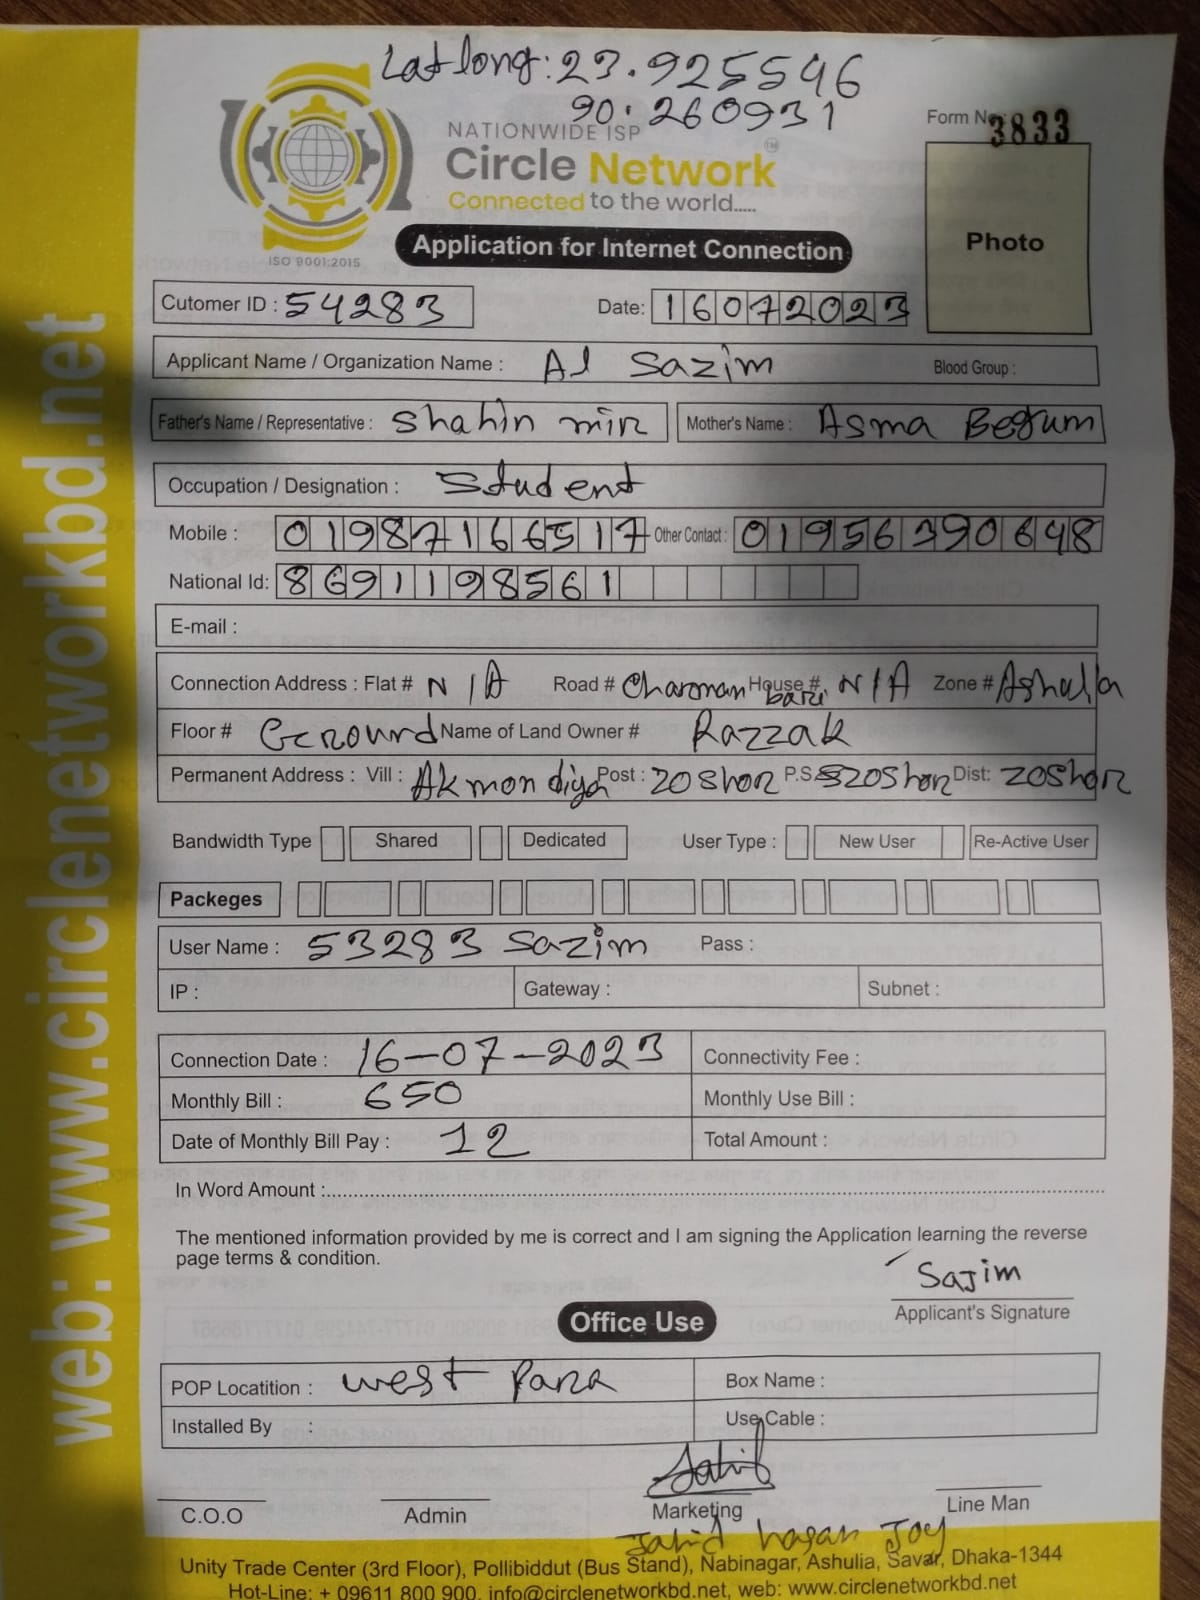 Lat long: 23.925546
90.260931
Form No: 3833
NATIONWIDE ISP
Circle Network ™
Connected to the world.....
ISO 9001:2015
Application for Internet Connection
Photo
Cutomer ID : 54283 Date: 16072023
Applicant Name / Organization Name : Al Sazim Blood Group :
Father's Name / Representative : Shahin mir Mother's Name : Asma Begum
Occupation / Designation : Student
Mobile : 01987166517 Other Contact : 01956390648
National Id: 8691198561
E-mail :
Connection Address : Flat # N/A Road # Charman bari House #. N/A Zone # Ashulia
Floor # Ground Name of Land Owner # Razzak
Permanent Address : Vill : Akmondiya Post : zoshor P.S zoshor Dist: zoshor
Bandwidth Type Shared Dedicated User Type : New User Re-Active User
Packeges
User Name : 53283 Sazim Pass :
IP : Gateway : Subnet :
Connection Date : 16-07-2023 Connectivity Fee :
Monthly Bill : 650 Monthly Use Bill :
Date of Monthly Bill Pay : 12 Total Amount :
In Word Amount :
The mentioned information provided by me is correct and I am signing the Application learning the reverse
page terms & condition.
Sajim
Applicant's Signature
Office Use
POP Locatition : west para Box Name :
Installed By : Use Cable :
Jahid
C.O.O Admin Marketing Line Man
Jahid hasan Joy
Unity Trade Center (3rd Floor), Pollibiddut (Bus Stand), Nabinagar, Ashulia, Savar, Dhaka-1344
Hot-Line: + 09611 800 900, info@circlenetworkbd.net, web: www.circlenetworkbd.net
web: www.circlenetworkbd.net